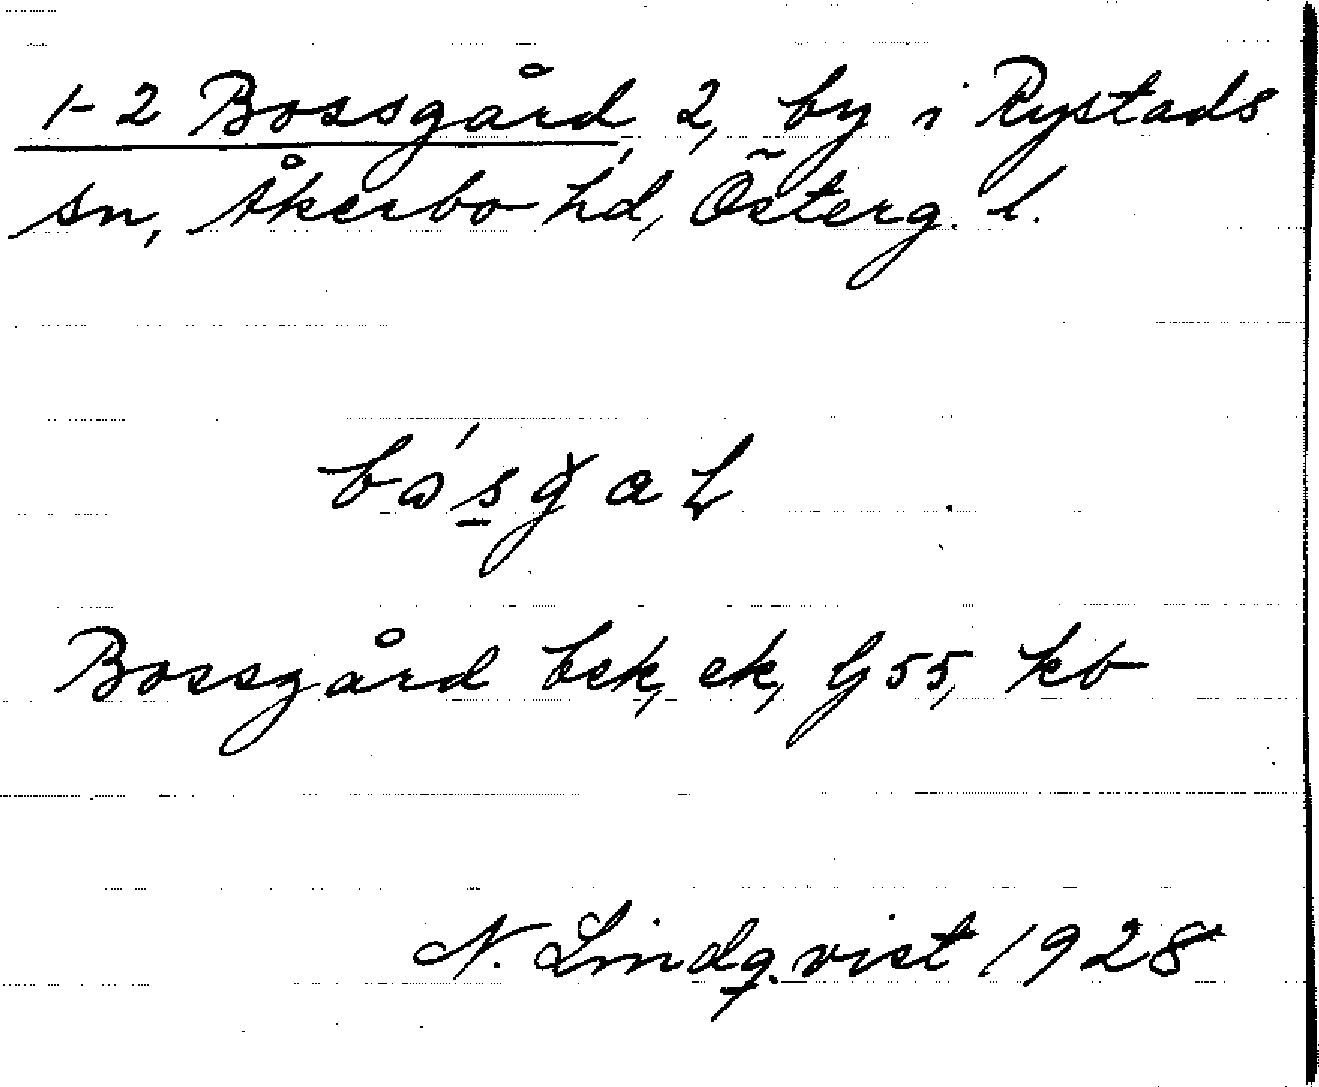 1-2 Bossgård, 2, by i Rystads
sn, Åkerbo hd, Österg. l.
Bossgård bck, ek, G55, kb
N. Lindqvist 1928